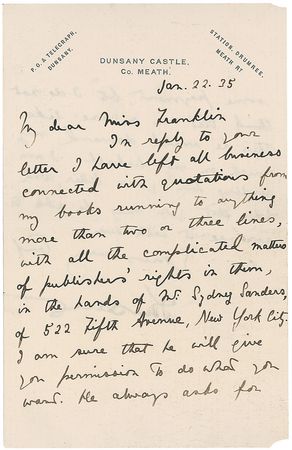 P.O. & TELEGRAPH,
DUNSANY.
STATION, DRUMREE,
MEATH RY
DUNSANY CASTLE,
CO. MEATH.
Jan. 22. 35
My dear Miss Franklin
In reply to your
letter I have left all business
connected with quotations from
my books running to anything
more than two or three lines,
with all the complicated matters
of publishers' rights in them,
in the hands of Mr. Sydney Sanders,
of 522 Fifth Avenue, New York City.
I am sure that he will give
you permission to do what you
want. He always asks for